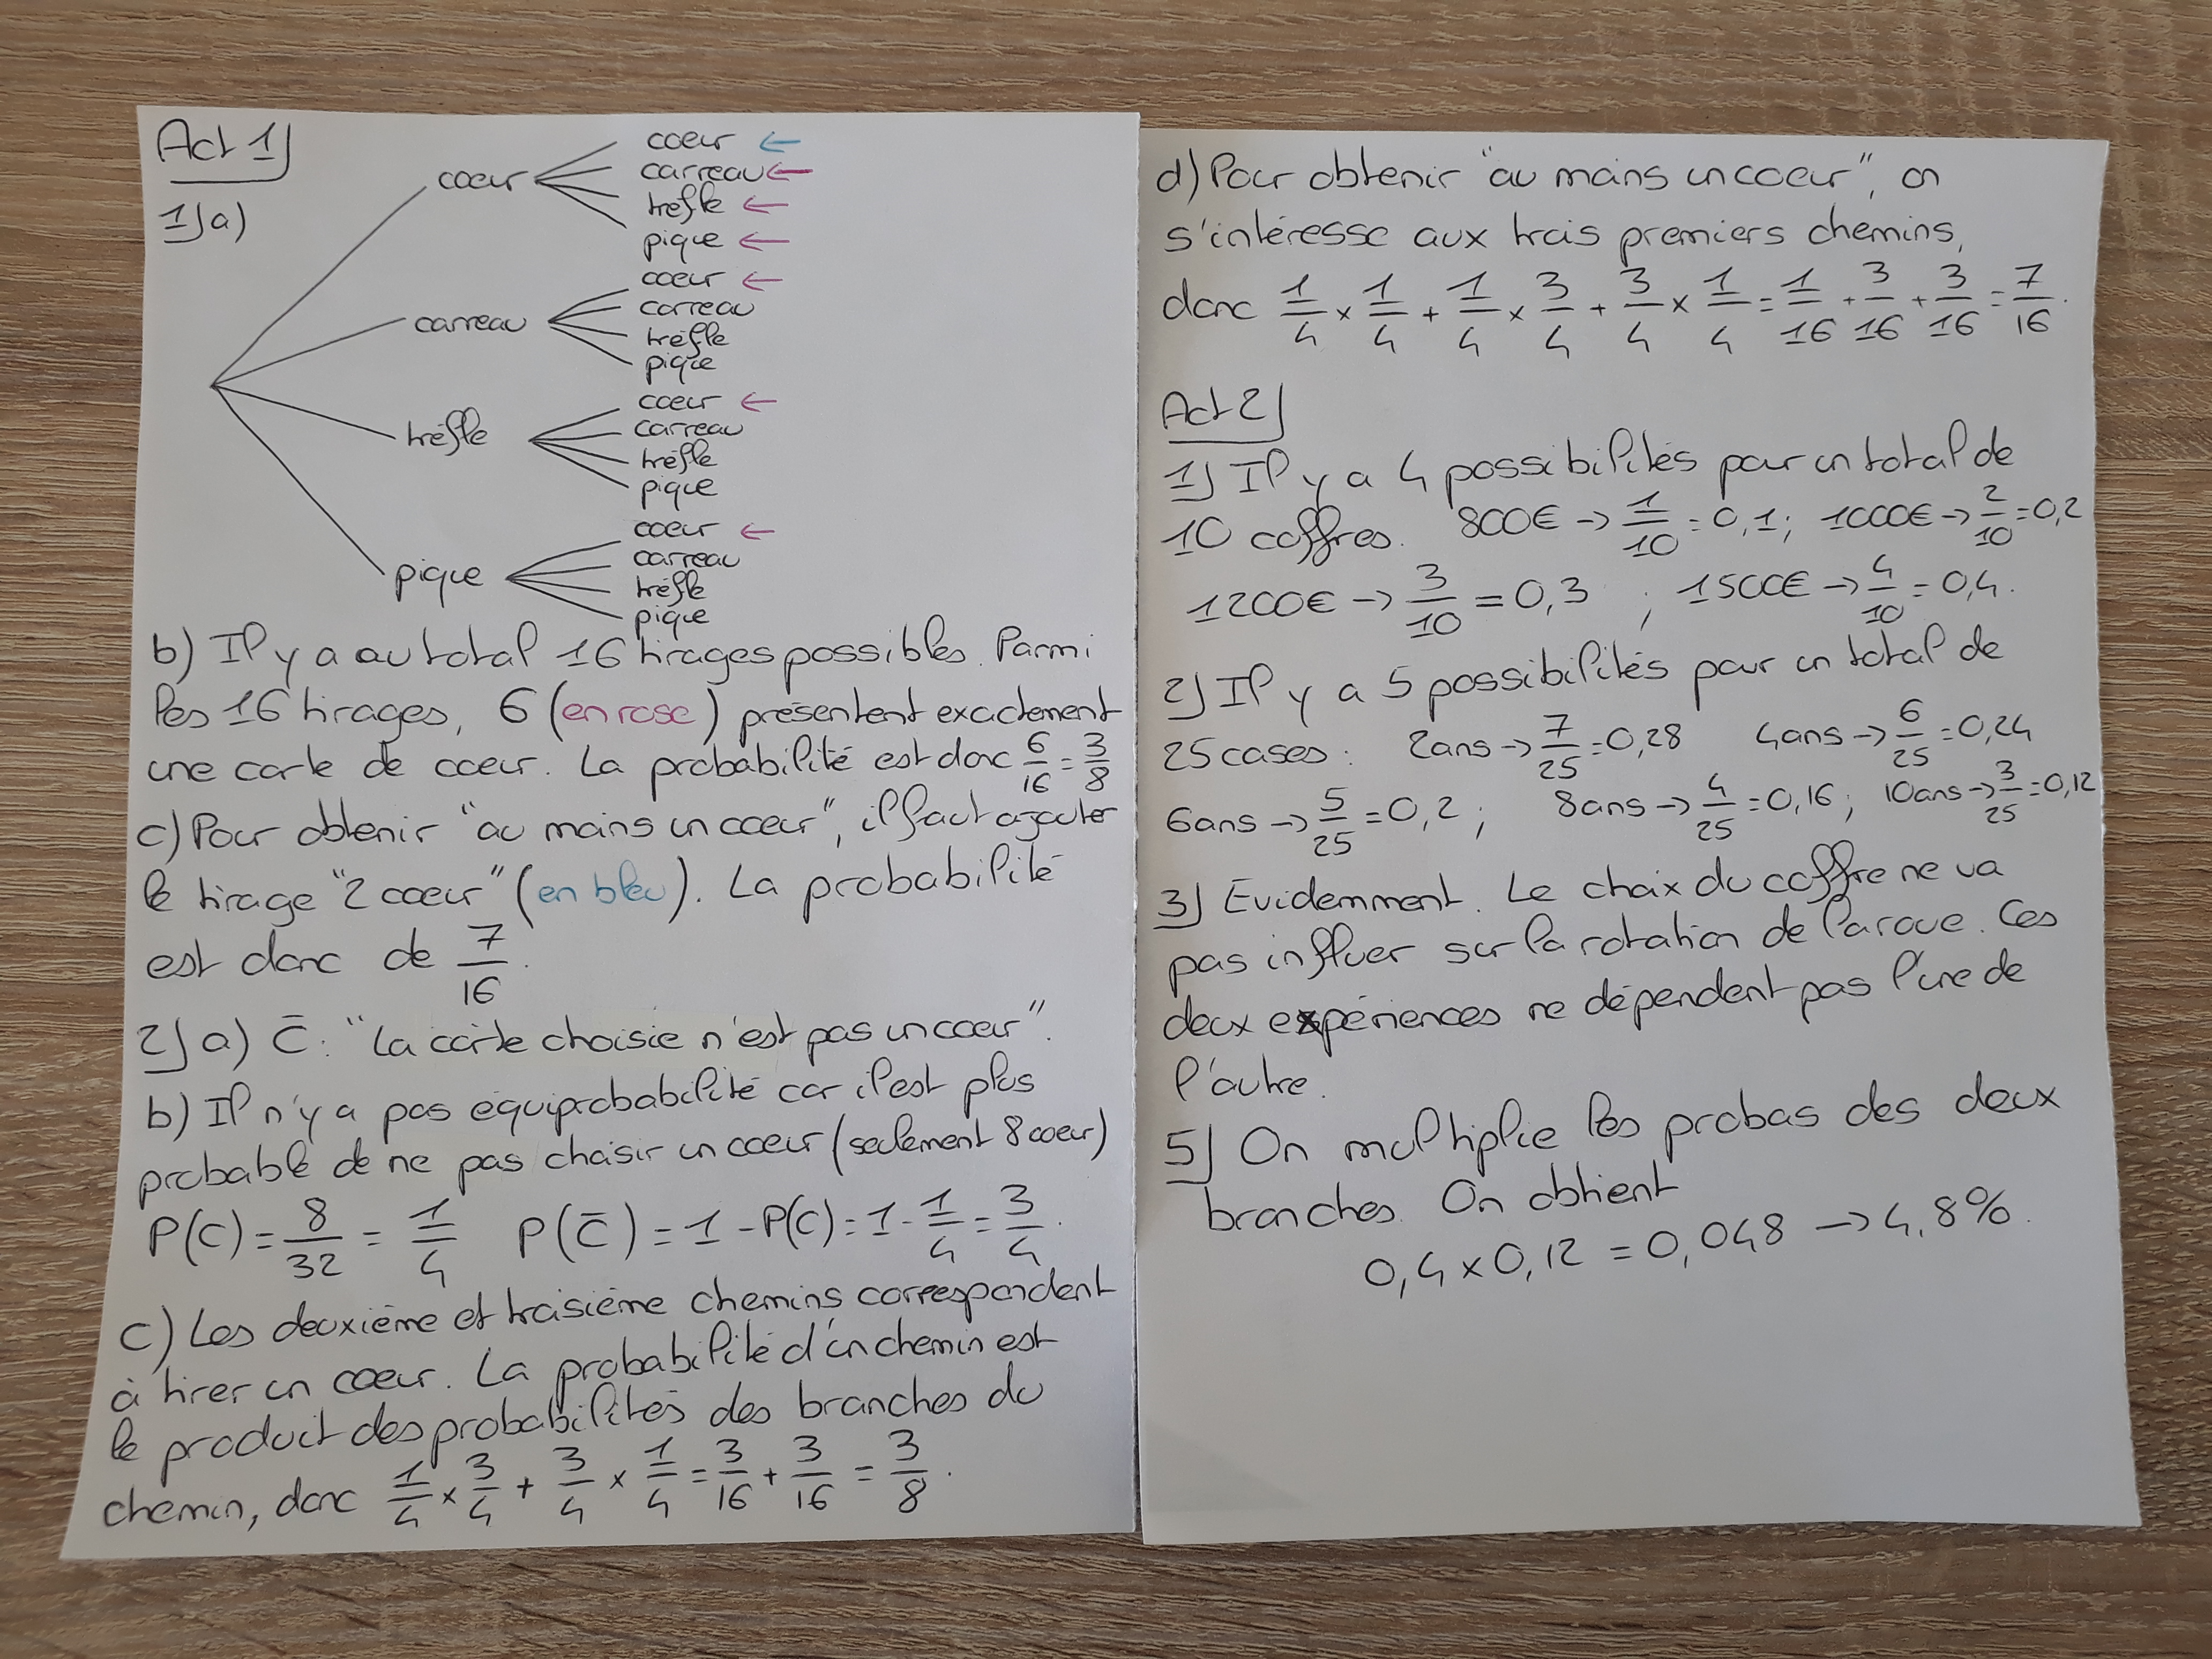 Act 1)
1) a)
coeur
coeur ←
carreau ←
trèfle ←
pique ←
carreau
coeur ←
carreau
trèfle
pique
trèfle
coeur ←
carreau
trèfle
pique
pique
coeur ←
carreau
trèfle
pique
b) Il y a au total 16 tirages possibles. Parmi
les 16 tirages, 6 (en rose) présentent exactement
une carte de coeur. La probabilité est donc 6/16 = 3/8
c) Pour obtenir "au moins un coeur", il faut ajouter
le tirage "2 coeur" (en bleu). La probabilité
est donc de 7/16.
2) a) C̄ : "La carte choisie n'est pas un coeur".
b) Il n'y a pas équiprobabilité car il est plus
probable de ne pas choisir un coeur (seulement 8 coeur)
P(C) = 8/32 = 1/4 P(C̄) = 1 - P(C) = 1 - 1/4 = 3/4.
c) Les deuxième et troisième chemins correspondent
à tirer un coeur. La probabilité d'un chemin est
le produit des probabilités des branches du
chemin, donc 1/4 × 3/4 + 3/4 × 1/4 = 3/16 + 3/16 = 3/8.
d) Pour obtenir "au moins un coeur", on
s'intéresse aux trois premiers chemins,
donc 1/4 × 1/4 + 1/4 × 3/4 + 3/4 × 1/4 = 1/16 + 3/16 + 3/16 = 7/16.
Act 2)
1) Il y a 4 possibilités pour un total de
10 coffres. 800€ → 1/10 = 0,1 ; 1000€ → 2/10 = 0,2
1200€ → 3/10 = 0,3 ; 1500€ → 4/10 = 0,4.
2) Il y a 5 possibilités pour un total de
25 cases : 2ans → 7/25 = 0,28 4ans → 6/25 = 0,24
6ans → 5/25 = 0,2 ; 8ans → 4/25 = 0,16 ; 10ans → 3/25 = 0,12
3) Evidemment. Le choix du coffre ne va
pas influer sur la rotation de la roue. Ces
deux expériences ne dépendent pas l'une de
l'autre.
5) On multiplie les probas des deux
branches. On obtient
0,4 × 0,12 = 0,048 → 4,8%.